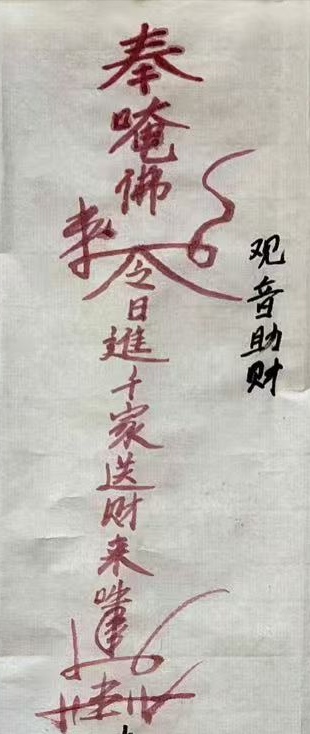 奉唵佛
令日進千家送财来
观音助财